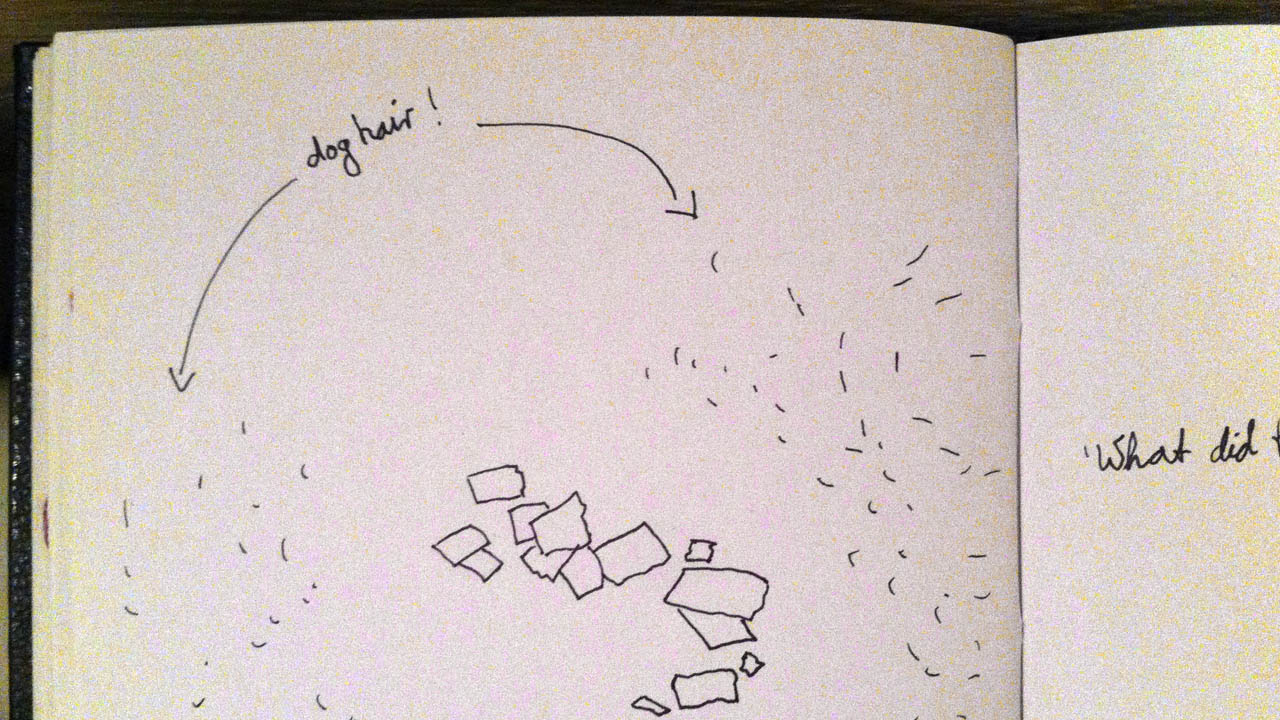 dog hair!
'What did